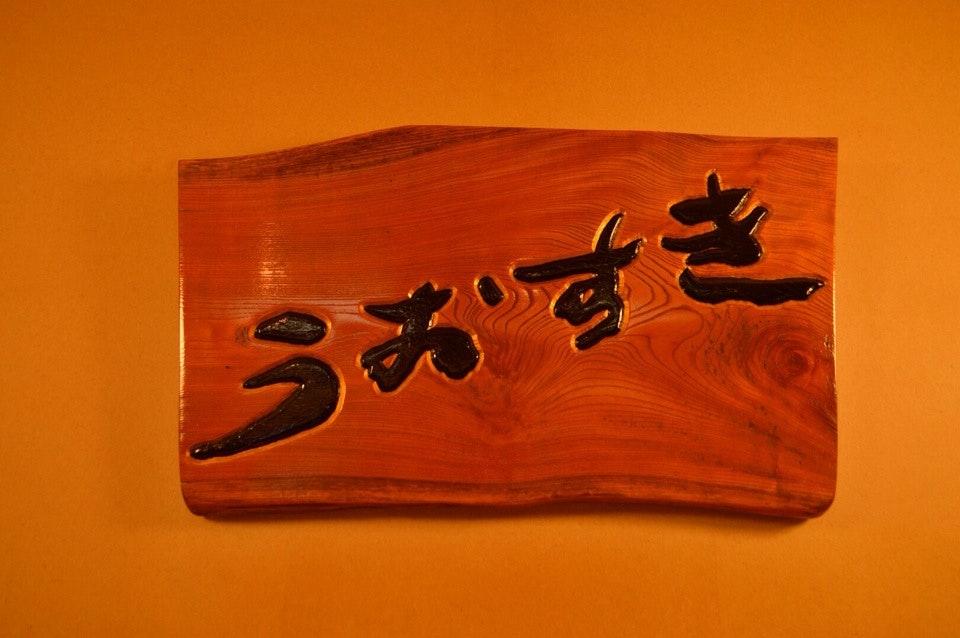 うおすき